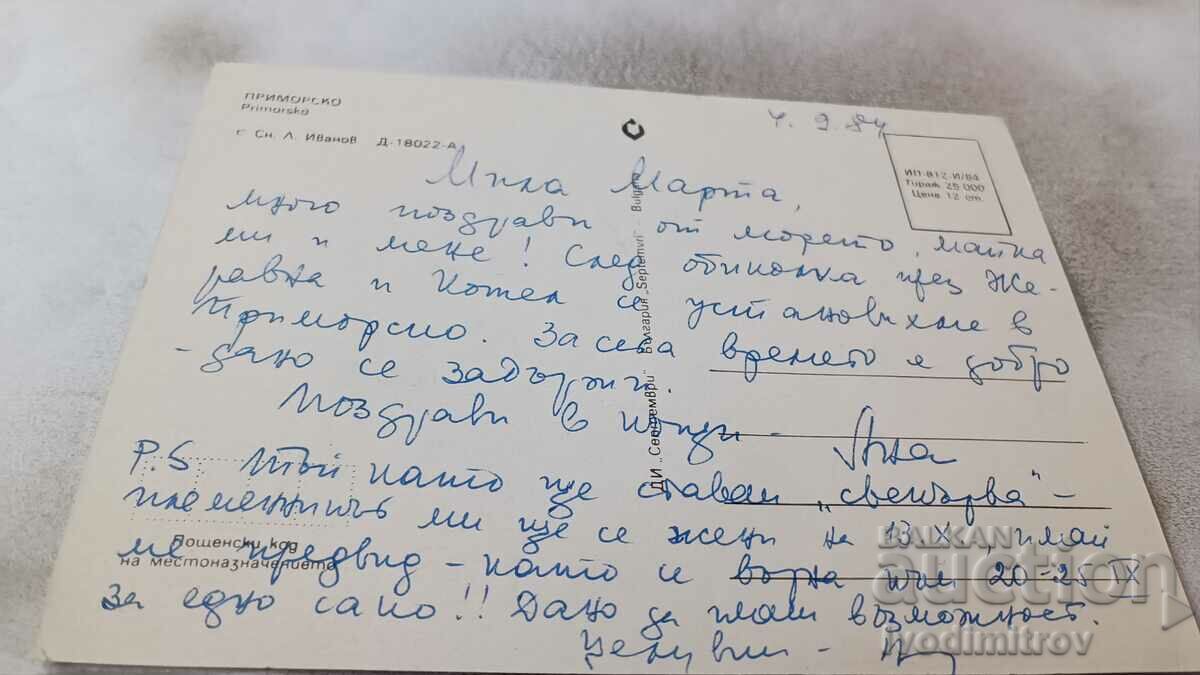 ПРИМОРСКО
Primorsko
г. Сн. Л. Иванов Д-18022-А
4. 9. 84
ИП-812-И/84
Тираж 25 000
Цена 12 ст.
Мила Марта,
много поздрави от морето, майка
ми и мене! След обиколка през Же-
равна и Котел се установихме в
Приморско. Засега времето е добро
- дано се задържи.
Поздрави
Яна
P.S Тъй като ще ставам „свекърва" -
племенникъ ми ще се жени на 13 X, имай
ме предвид - като се върна към 20-25 IX
за едно сако!! Дано да имаш възможност.
Целувки -
Пощенски код
на местоназначението
ДИ „Септември" България „Septemvri" - Bulgaria
BALKAN
auction
ivodimitrov